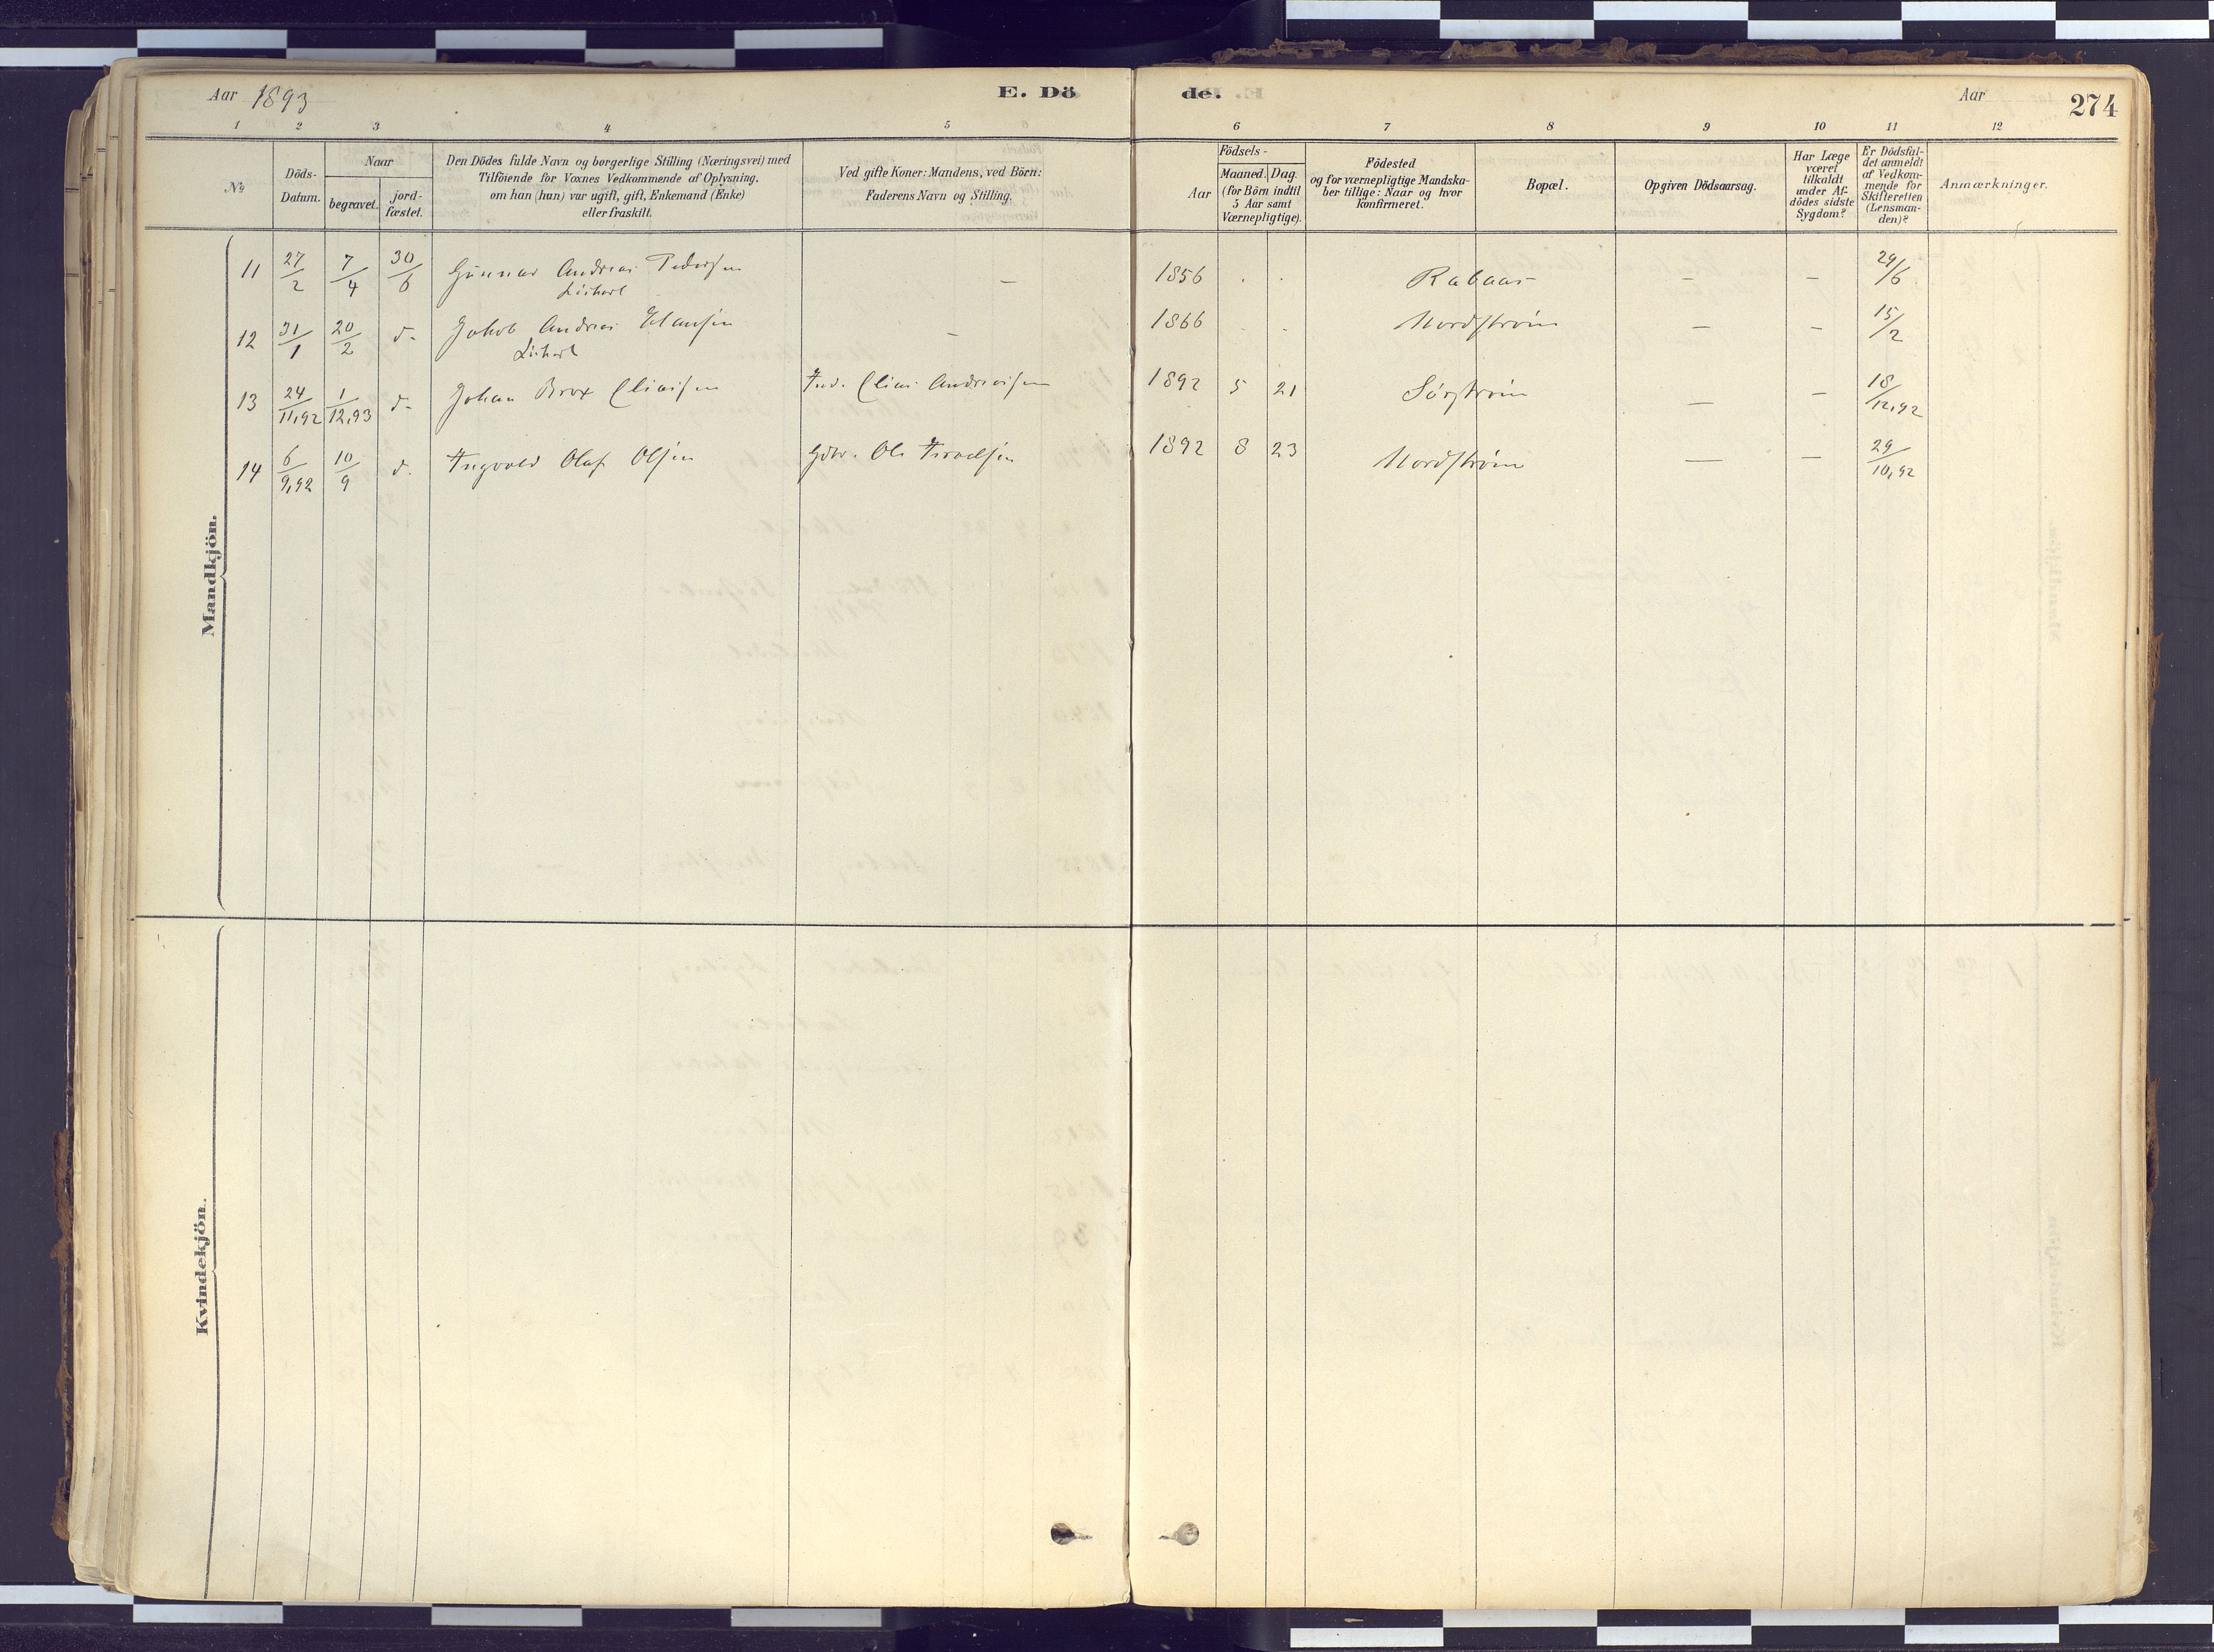 Aar 1893 E. Dö de. Aar 274
1 2 3 4 5 6 7 8 9 10 11 12
No
Döds-Datum.
Naar
begravet.
jord-fæstet.
Den Dödes fulde Navn og borgerlige Stilling (Næringsvei) med
Tilföiende for Voxnes Vedkommende af Oplysning,
om han (hun) var ugift, gift, Enkemand (Enke)
eller fraskilt.
Ved gifte Koner: Mandens, ved Börn:
Faderens Navn og Stilling.
Födsels-
Aar
Maaned. Dag.
(for Börn indtil
5 Aar samt
Værnepligtige).
Födested
og for værnepligtige Mandska-
ber tillige: Naar og hvor
konfirmeret.
Bopæl.
Opgiven Dödsaarsag.
Har Læge
været
tilkaldt
under Af-
dödes sidste
Sygdom?
Er Dödsfal-
det anmeldt
af Vedkom-
mende for
Skifteretten
(Lensman-
den)?
Anmærkninger.
Mandkjön.
11 27/2 7/4 30/6 Gunnar Andreas Pedersen — 1856 . . Rabaas — — 29/6
12 31/1 20/2 d- Jakob Andreas — 1866 . . Nordstrøm — — 15/2
13 24/11,92 1/12,93 d- Johan Brox Eliaisen Ind. Elias Andreaisen 1892 5 21 Sørstrøm — — 18/12,92
14 6/9,92 10/9 d. Ingvald Olaf Olsen Gbr. Ole Israelsen 1892 8 23 Nordstrøm — — 29/10,92
Kvindekjön.